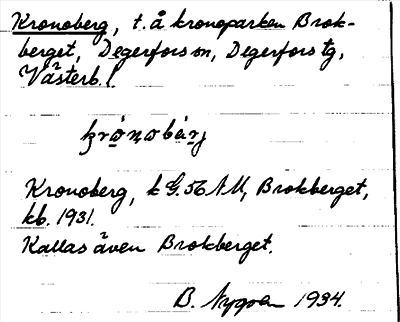 Kronoberg, t. å kronoparken Brok-
berget, Degerfors sn, Degerfors tg,
Västerb. l.
Kronoberg, k G. 56 NV, Brokberget,
kb. 1931.
Kallas även Brokberget.
B. Nygren 1934.